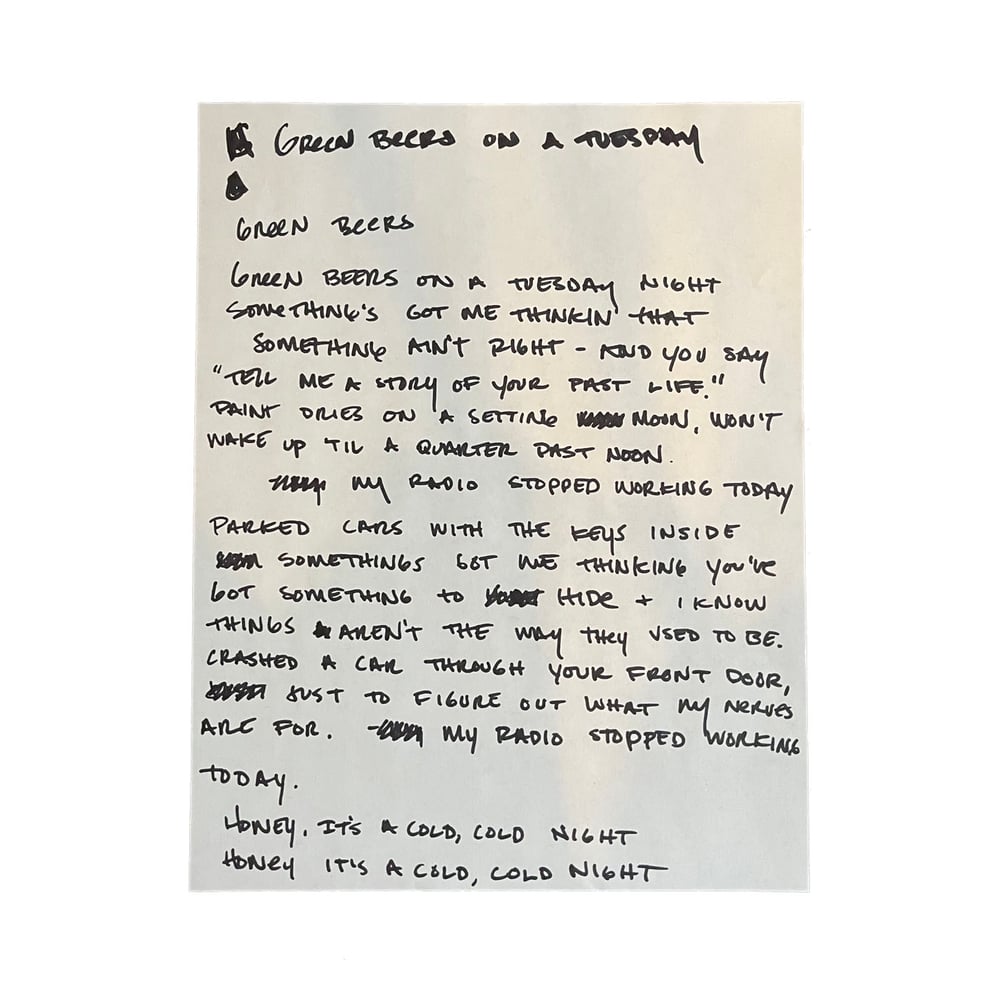 GREEN BEERS ON A TUESDAY
GREEN BEERS
GREEN BEERS ON A TUESDAY NIGHT
SOMETHING'S GOT ME THINKIN' THAT
SOMETHING AIN'T RIGHT - AND YOU SAY
"TELL ME A STORY OF YOUR PAST LIFE."
PAINT DRIES ON A SETTING MOON, WON'T
WAKE UP 'TIL A QUARTER PAST NOON.
MY RADIO STOPPED WORKING TODAY
PARKED CARS WITH THE KEYS INSIDE
SOMETHINGS GOT ME THINKING YOU'VE
GOT SOMETHING TO HIDE + I KNOW
THINGS AREN'T THE WAY THEY USED TO BE.
CRASHED A CAR THROUGH YOUR FRONT DOOR,
JUST TO FIGURE OUT WHAT MY NERVES
ARE FOR. MY RADIO STOPPED WORKING
TODAY.
HONEY, IT'S A COLD, COLD NIGHT
HONEY IT'S A COLD, COLD NIGHT